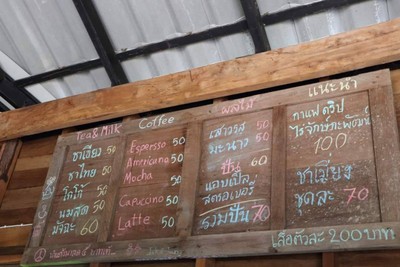 Tea & Milk
ชาเขียว 50
ชาไทย 50
โกโก้ 50
นมสด 50
มัจฉะ 60
Coffee
Espresso 50
Amricano 50
Mocha 50
Capucino 50
Latte 50
ผลไม้
เสาวรส 50
มะนาว 50
ปั่น 60
แอบเปิ้ล
สตรอเบอรี่
รวมปั่น 70
แนะนำ
กาแฟดริป
100
ชาเมี่ยง
ชุดละ 70
เสื้อตัวละ 200 บาท